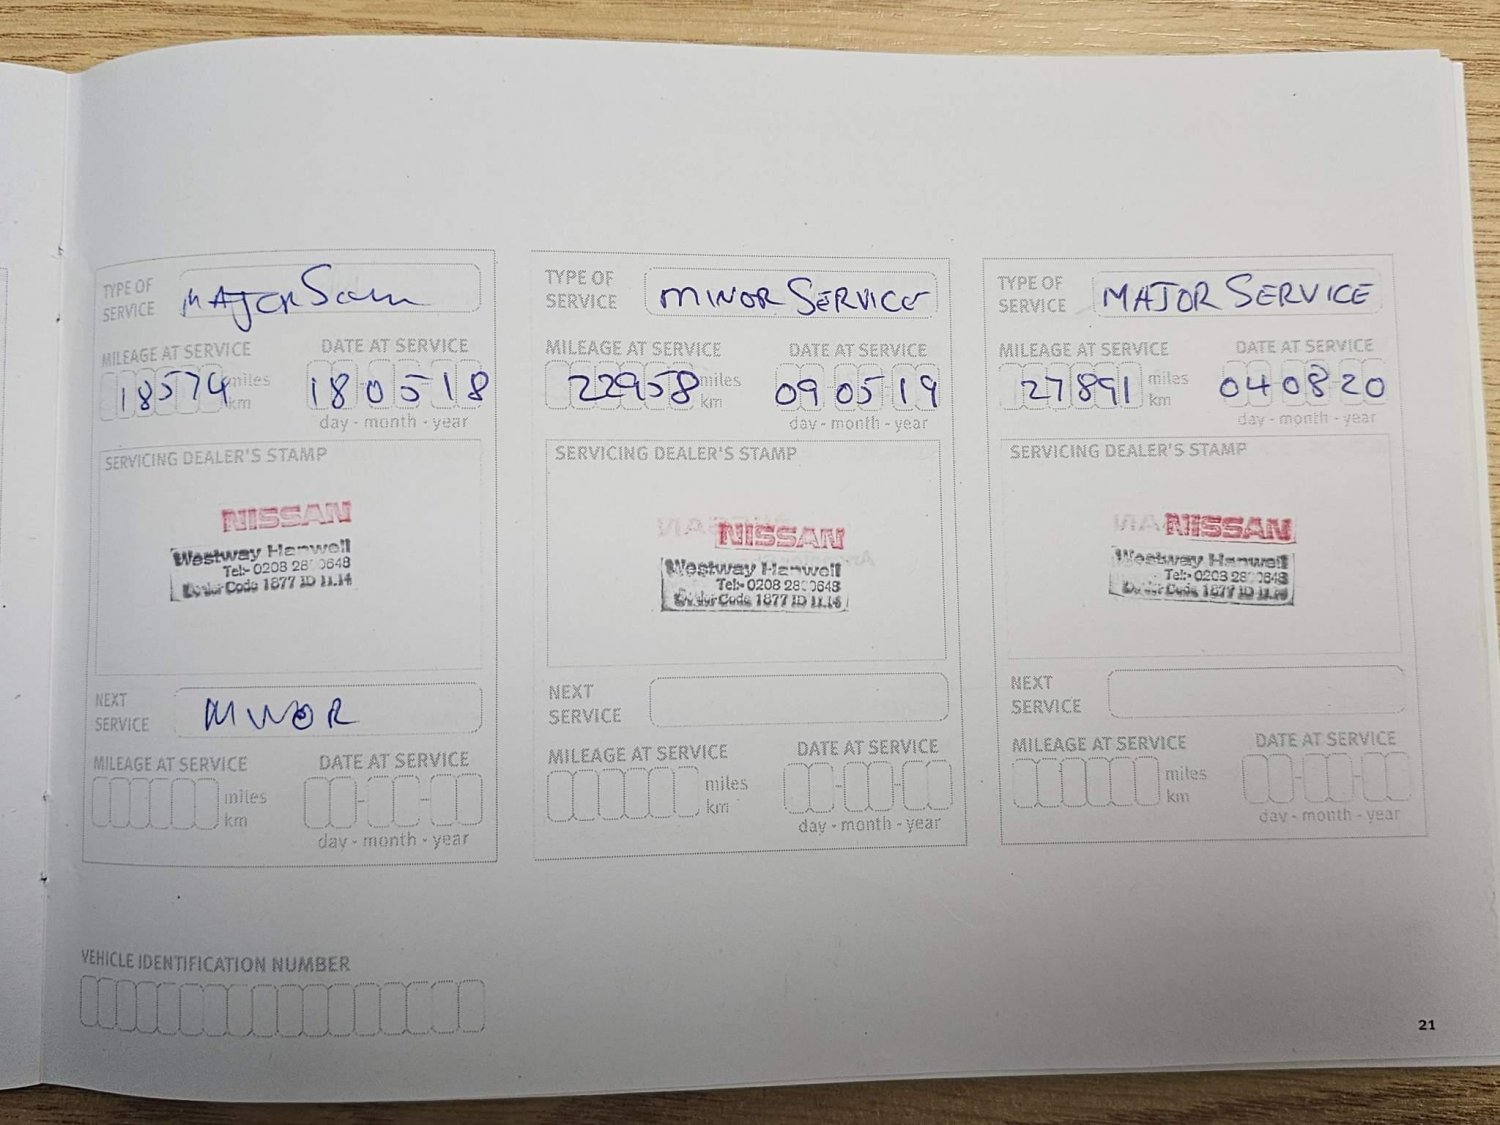 TYPE OF SERVICE MAJOR
MILEAGE AT SERVICE DATE AT SERVICE
18574 miles km 18 05 18
day - month - year
SERVICING DEALER'S STAMP
NISSAN
Westway Hanwell
Tel:- 0208 28 0648
Dealer Code 1877 ID 11.14
NEXT SERVICE MINOR
MILEAGE AT SERVICE DATE AT SERVICE
miles km
day - month - year
TYPE OF SERVICE MINOR SERVICE
MILEAGE AT SERVICE DATE AT SERVICE
22958 miles km 09 05 19
day - month - year
SERVICING DEALER'S STAMP
NISSAN
Westway Hanwell
Tel:- 0208 28 0648
Dealer Code 1877 ID 11.14
NEXT SERVICE
MILEAGE AT SERVICE DATE AT SERVICE
miles km
day - month - year
TYPE OF SERVICE MAJOR SERVICE
MILEAGE AT SERVICE DATE AT SERVICE
27891 miles km 04 08 20
day - month - year
SERVICING DEALER'S STAMP
NISSAN
Westway Hanwell
Tel:- 0208 28 0648
Dealer Code 1877 ID 11.14
NEXT SERVICE
MILEAGE AT SERVICE DATE AT SERVICE
miles km
day - month - year
VEHICLE IDENTIFICATION NUMBER
21